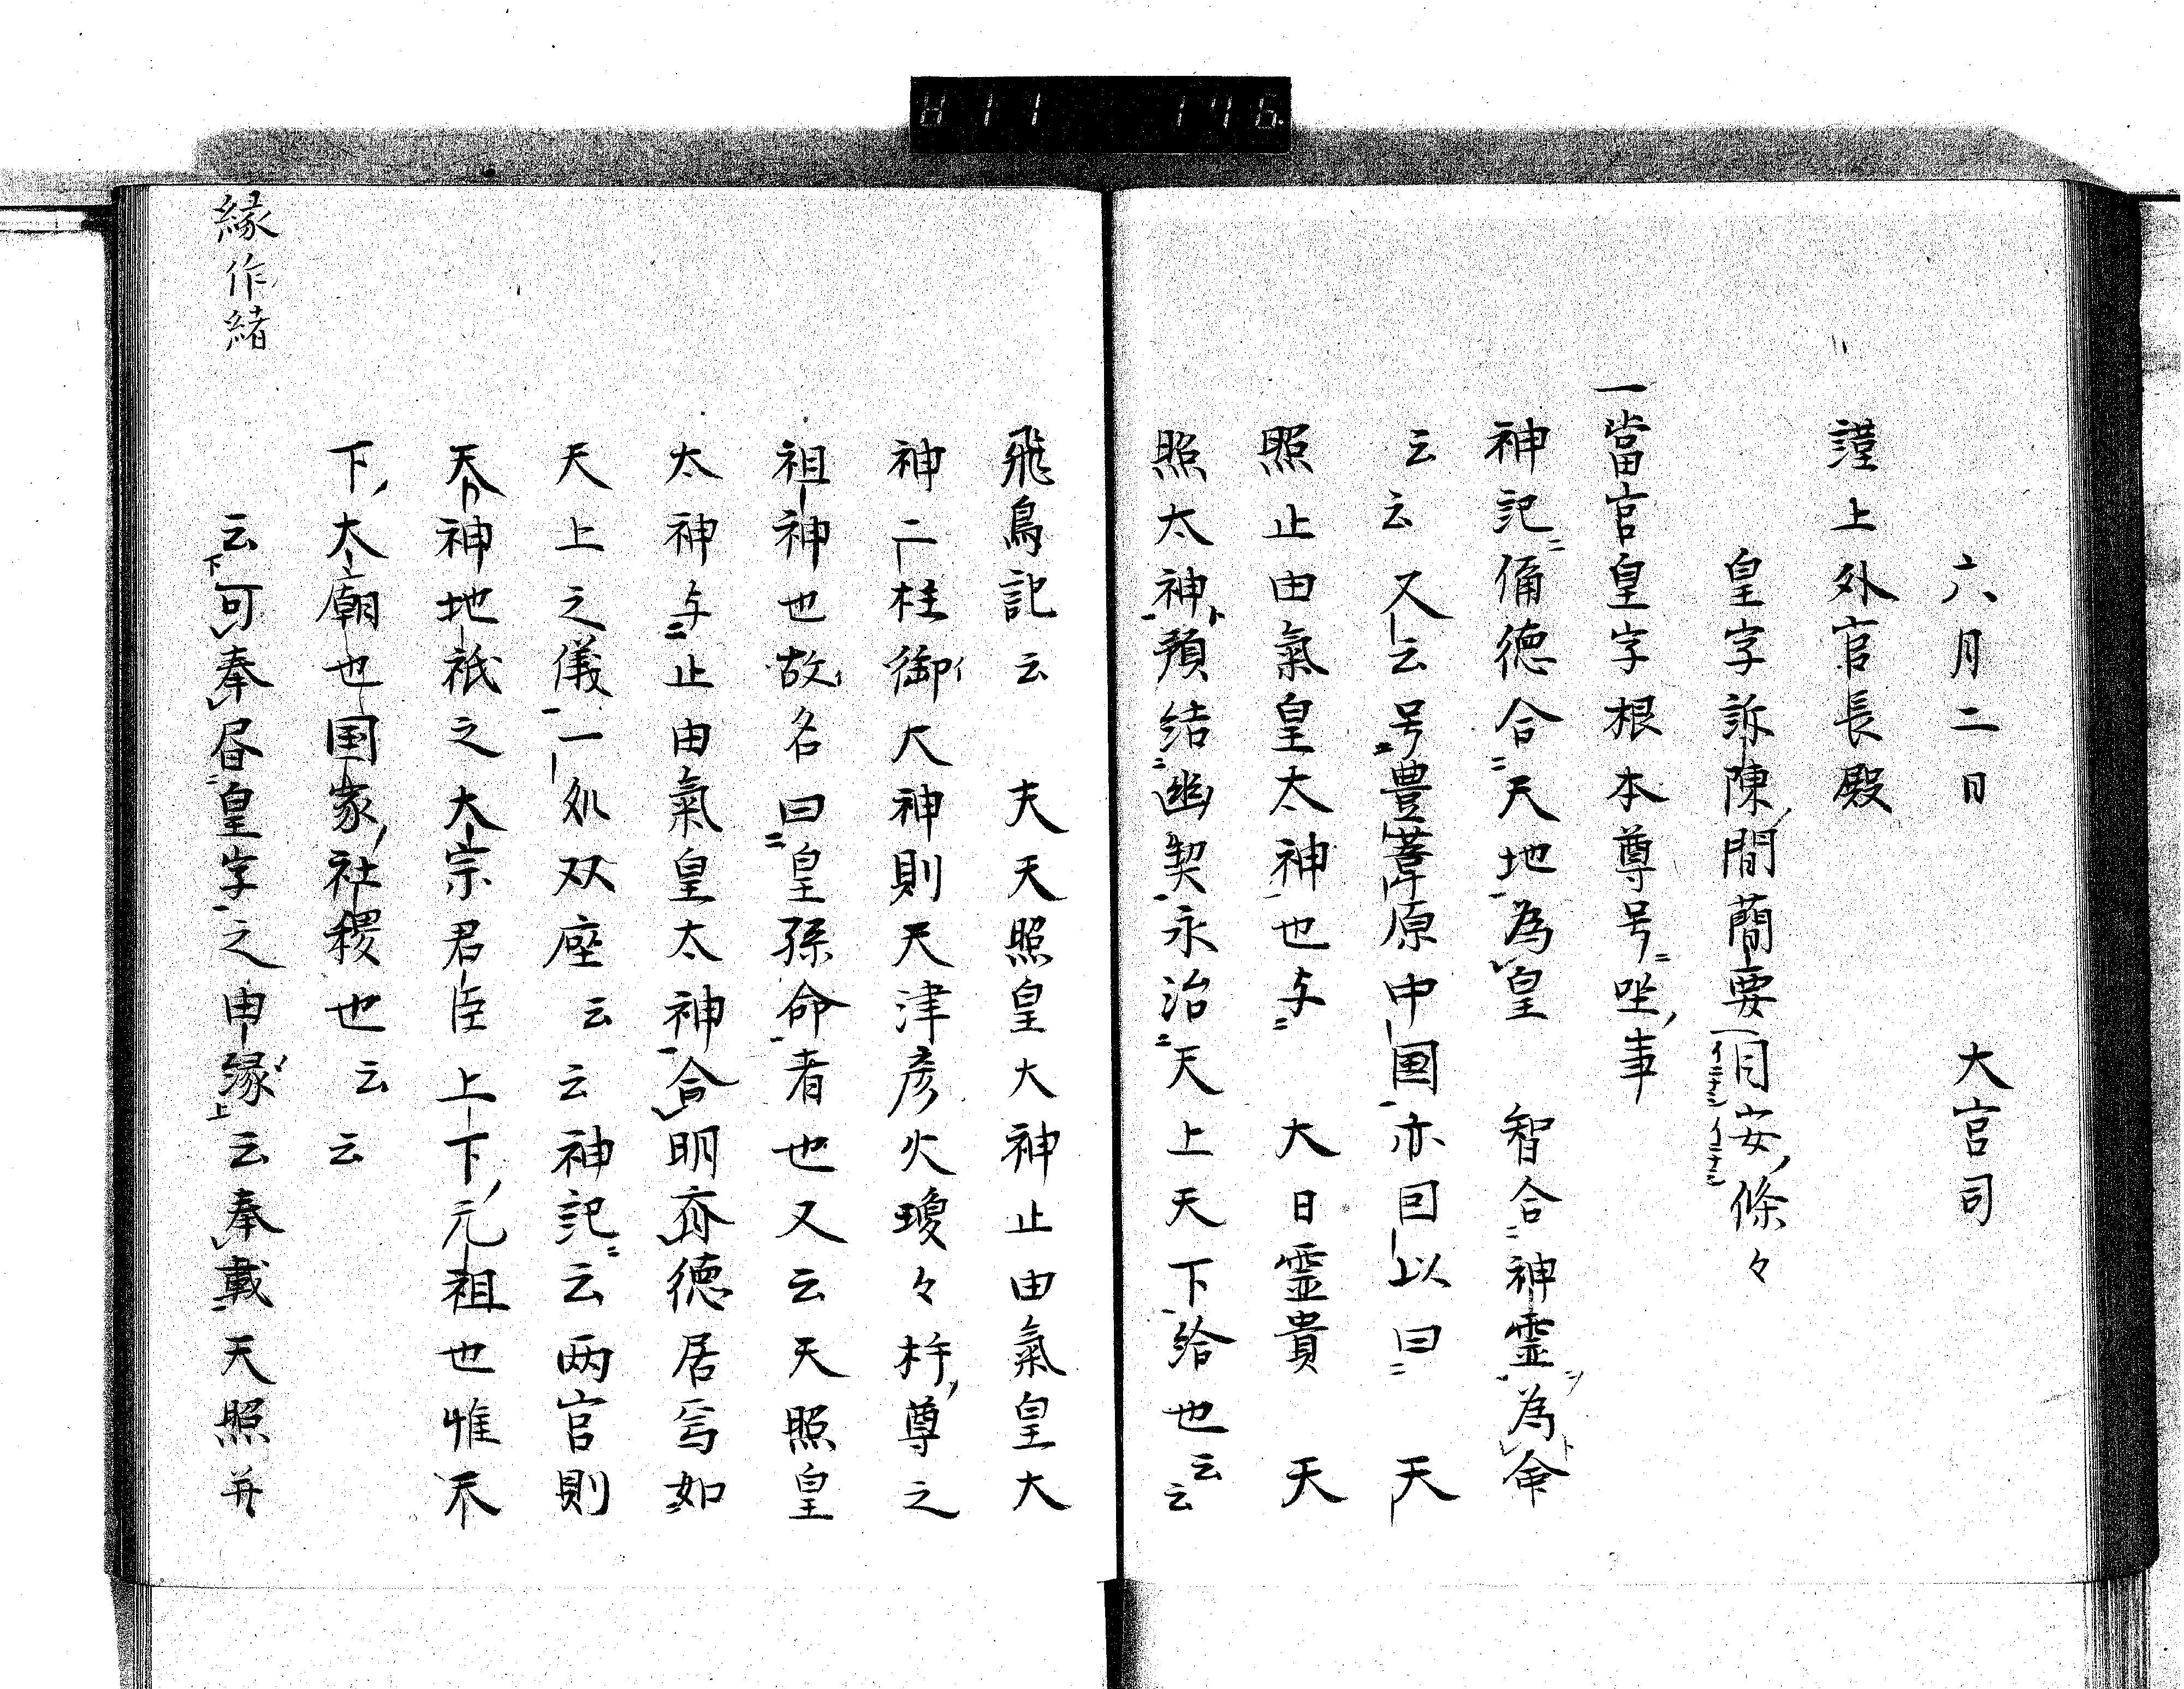 六月二日　大宮司
謹上外宮長殿
皇字訴陳間簡要目安條々
一當宮皇字根本尊号坐事
神記偁徳合天地為皇　智合神霊為命
云云又云号豊葦原中国亦曰以曰　天
照止由氣皇太神也与　大日霊貴　天
照太神預結幽契永治天上天下給也云云
飛鳥記云　夫天照皇大神止由氣皇大
神二柱御大神則天津彦火瓊々杵尊之
祖神也故名曰皇孫命者也又云天照皇
太神与止由氣皇太神合明齊徳居焉如
天上之儀一処双座云云神記云両宮則
天神地祇之大宗君臣上下元祖也惟天
下大廟也国家社稷也云云
云可奉㫪皇字之申縁云奉載天照并
縁作緒
811 146